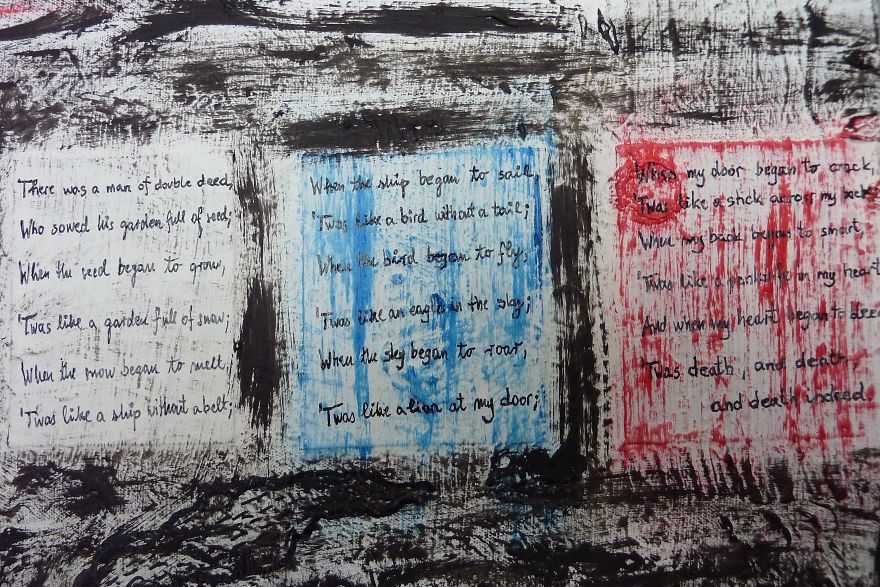 There was a man of double deed,
Who sowed his garden full of seed;
When the seed began to grow,
'Twas like a garden full of snow;
When the snow began to melt,
'Twas like a ship without a belt;
When the ship began to sail,
'Twas like a bird without a tail;
When the bird began to fly,
'Twas like an eagle in the sky;
When the sky began to roar,
'Twas like a lion at my door;
When my door began to crack,
'Twas like a stick across my back;
When my back began to smart,
'Twas like a penknife in my heart
And when my heart began to bleed
'Twas death, and death,
and death indeed.